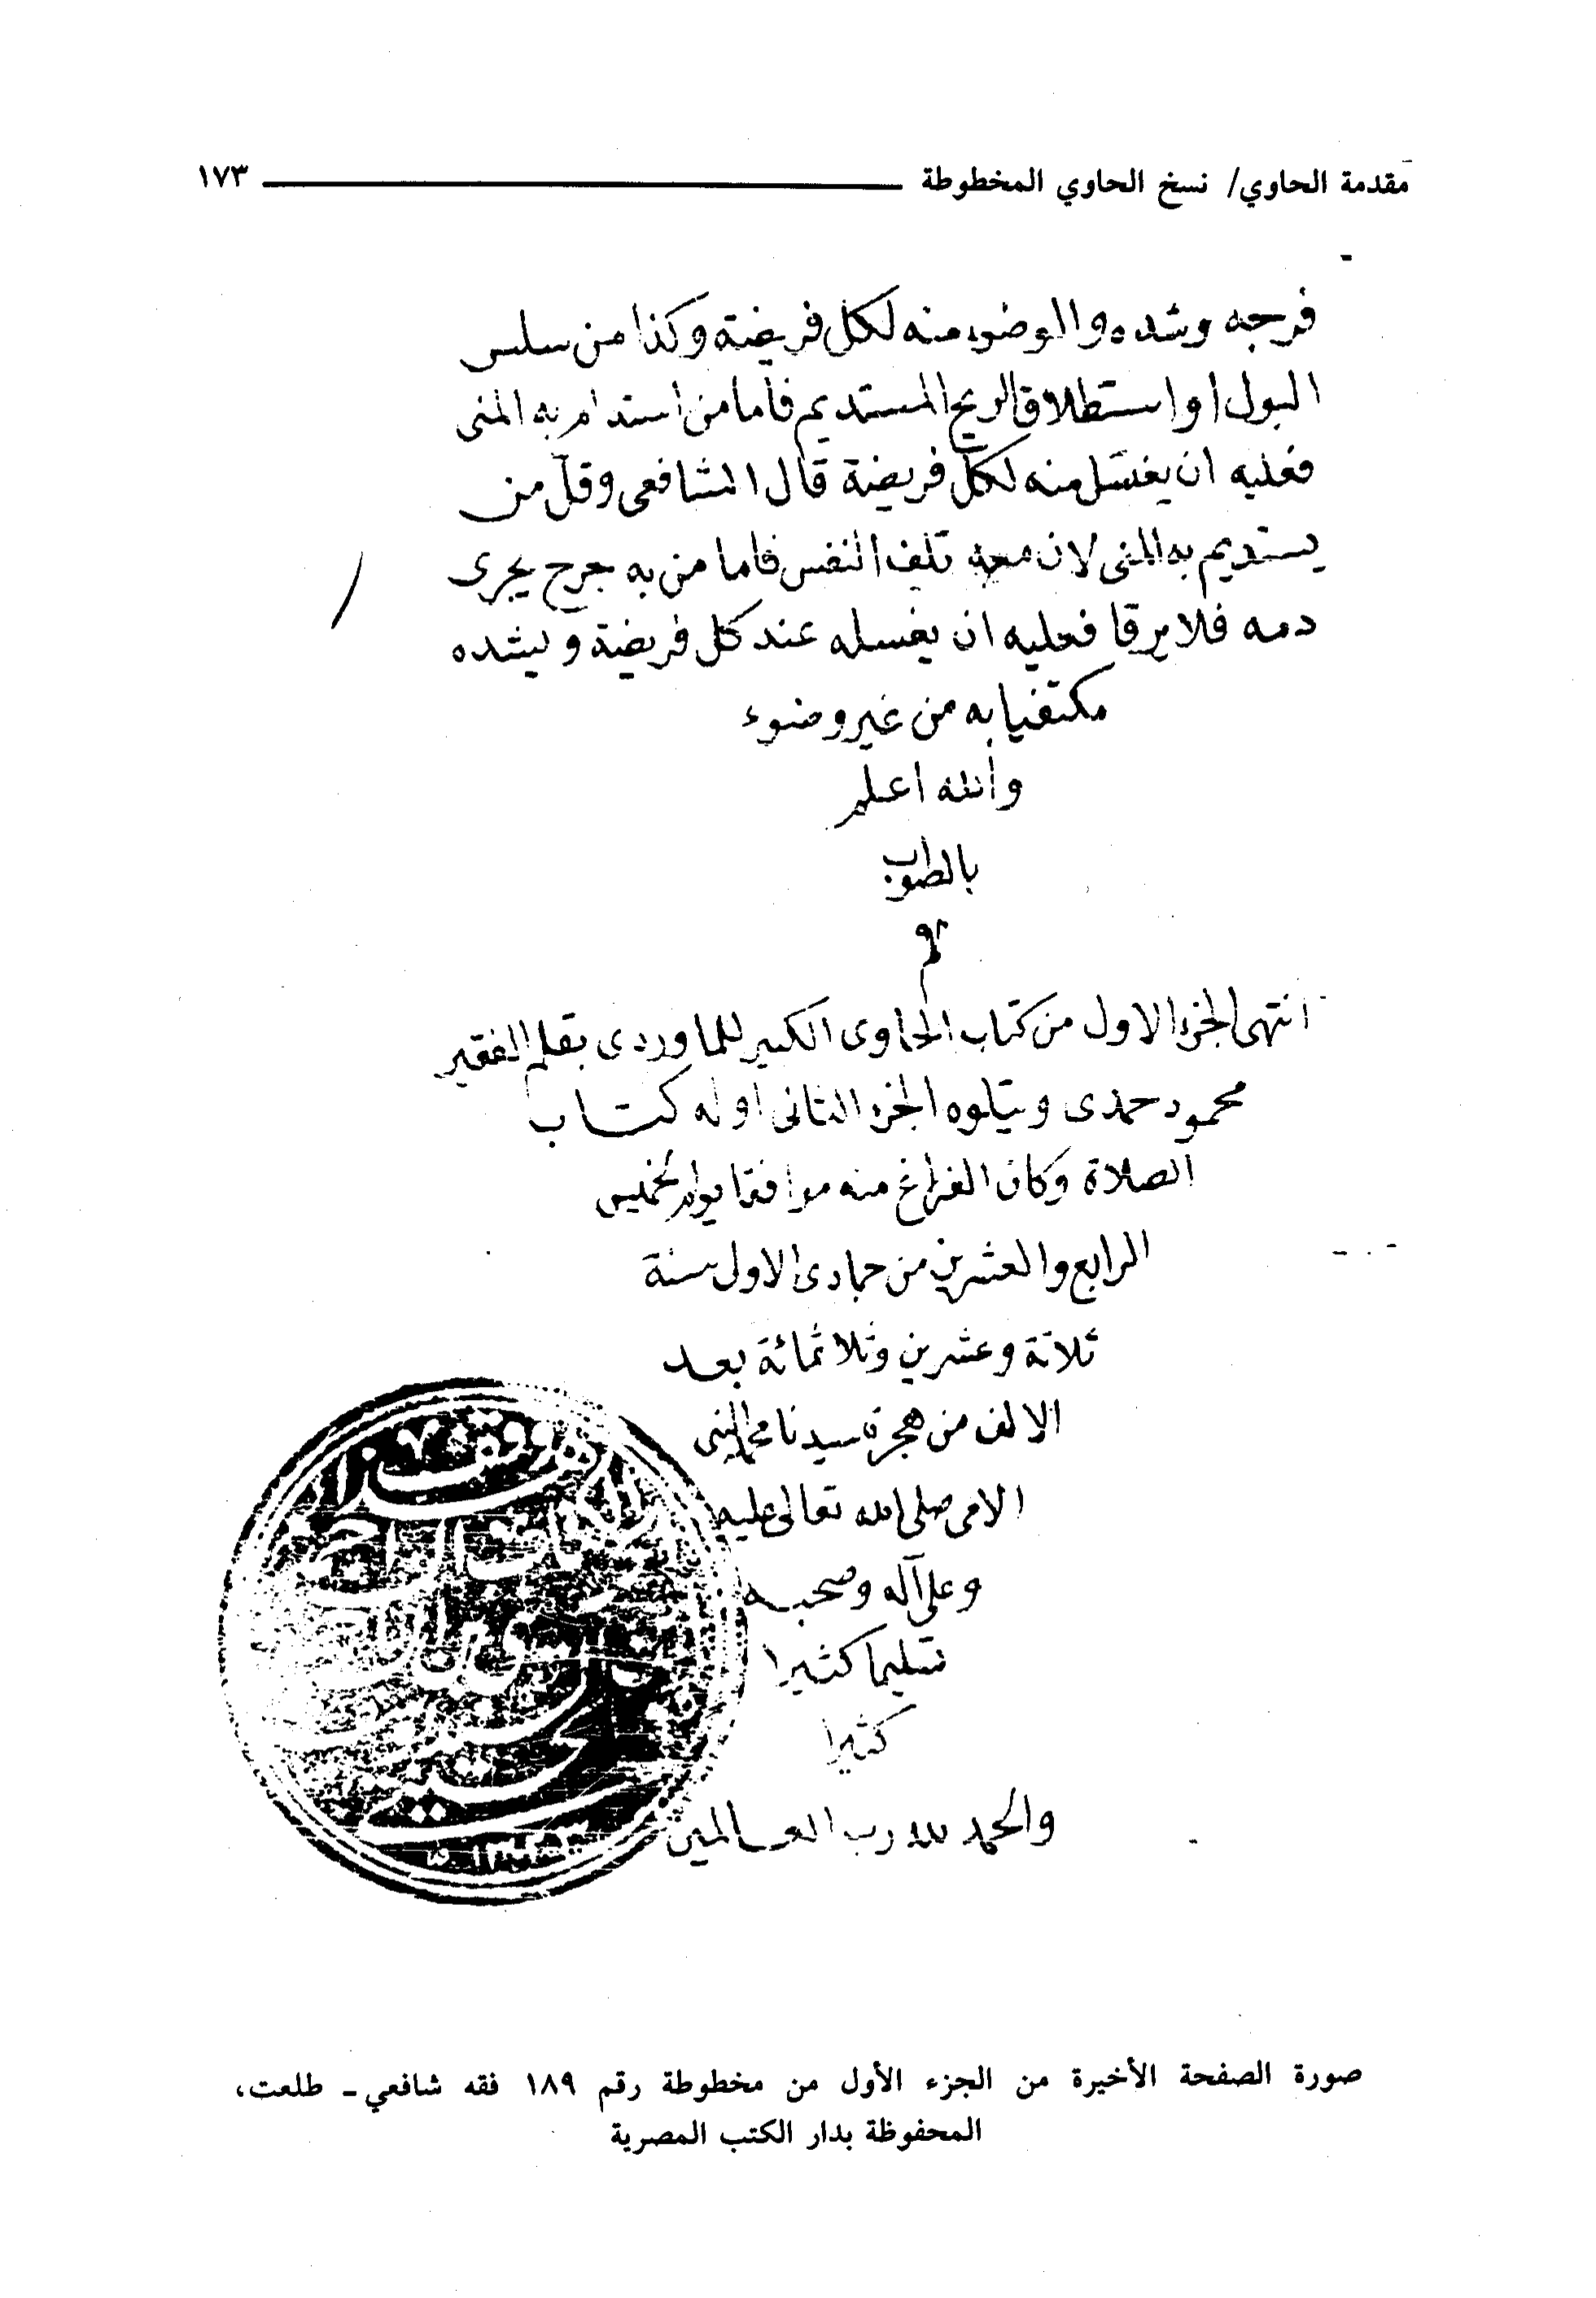 مقدمة الحاوي/ نسخ الحاوي المخطوطة ١٧٣
فرجه وشده والوضوء منه لكل فريضة وكذا من سلس
البول او استطلاق الريح المستديم فأما من استدام به المنى
فعليه ان يغتسل منه لكل فريضة قال الشافعى وقل من
يستديم به المنى لان معه تلف النفس فاما من به جرح يجرى
دمه فلا يرقا فعليه ان يغسله عند كل فريضة ويشده
مكتفيا به من غير وضوء
والله اعلم
بالصواب
م
انتهى الجزء الاول من كتاب الحاوى الكبير للماوردى بقلم الفقير
محمود حمدى ويتلوه الجزء الثانى اوله كتاب
الصلاة وكان الفراغ منه موافقا يوم الخميس
الرابع والعشرين من جمادى الاول سنة
ثلاثة وعشرين وثلاثمائة بعد
الالف من هجرة سيدنا محمد النبى
الامى صلى الله تعالى عليه
وعلى آله وصحبه
تسليما كثيرا
كثيرا
والحمد لله رب العالمين
صورة الصفحة الأخيرة من الجزء الأول من مخطوطة رقم ١٨٩ فقه شافعي - طلعت،
المحفوظة بدار الكتب المصرية